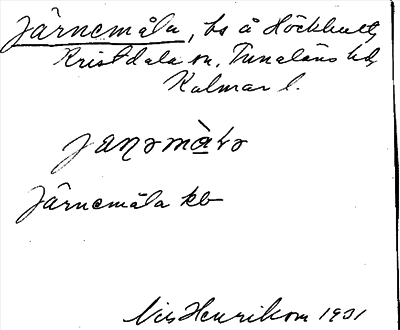 Järnemåla, bs å Höckhult,
Kristdala sn, Tunaläns hd,
Kalmar l.
Järnemåla kb
Nils Henrikson 1931